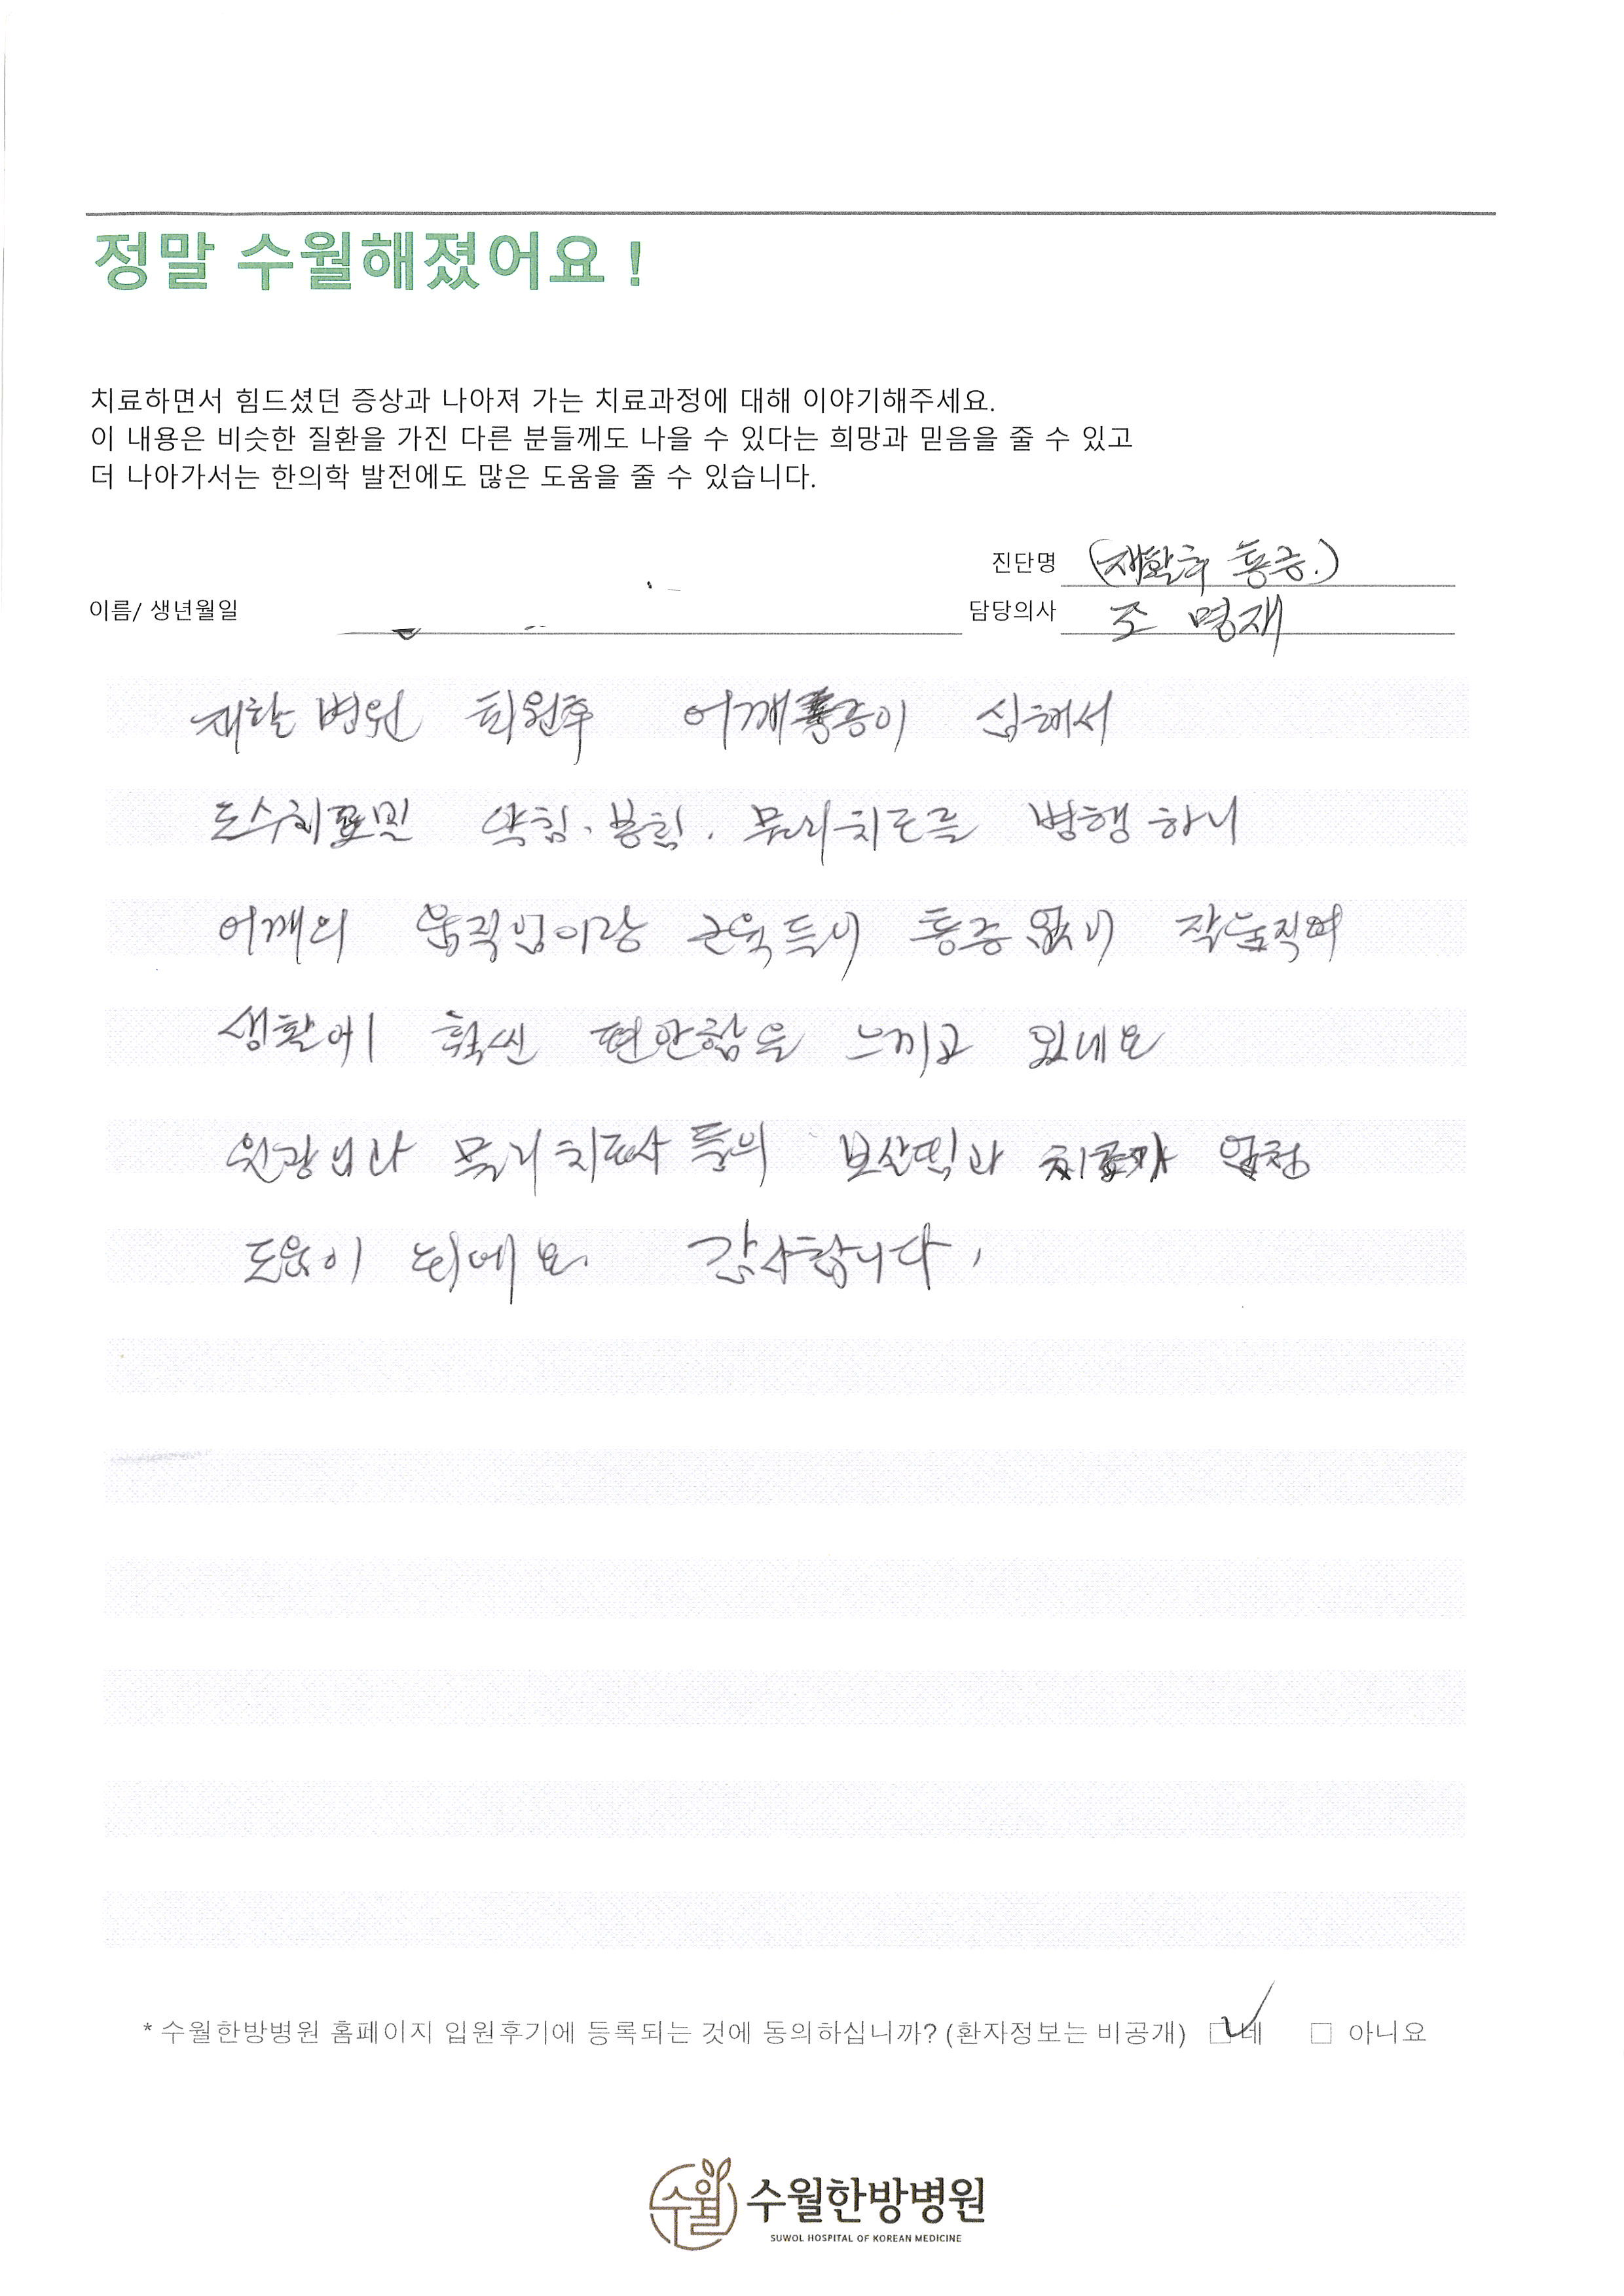 정말 수월해졌어요 !
치료하면서 힘드셨던 증상과 나아져 가는 치료과정에 대해 이야기해주세요.
이 내용은 비슷한 질환을 가진 다른 분들께도 나을 수 있다는 희망과 믿음을 줄 수 있고
더 나아가서는 한의학 발전에도 많은 도움을 줄 수 있습니다.
진단명 (재활후 통증.)
이름/ 생년월일 담당의사 조 명재
재활병원 퇴원후 어깨통증이 심해서
도수치료및 약침. 봉침. 물리치료를 병행하니
어깨의 움직임이랑 근육들이 통증없이 잘움직여
생활에 훨씬 편안함을 느끼고 있네요
원장님과 물리치료사들의 보살핌과 치료가 엄청
도움이 되네요. 감사합니다.
* 수월한방병원 홈페이지 입원후기에 등록되는 것에 동의하십니까? (환자정보는 비공개) □네 □ 아니요
수월 수월한방병원
SUWOL HOSPITAL OF KOREAN MEDICINE